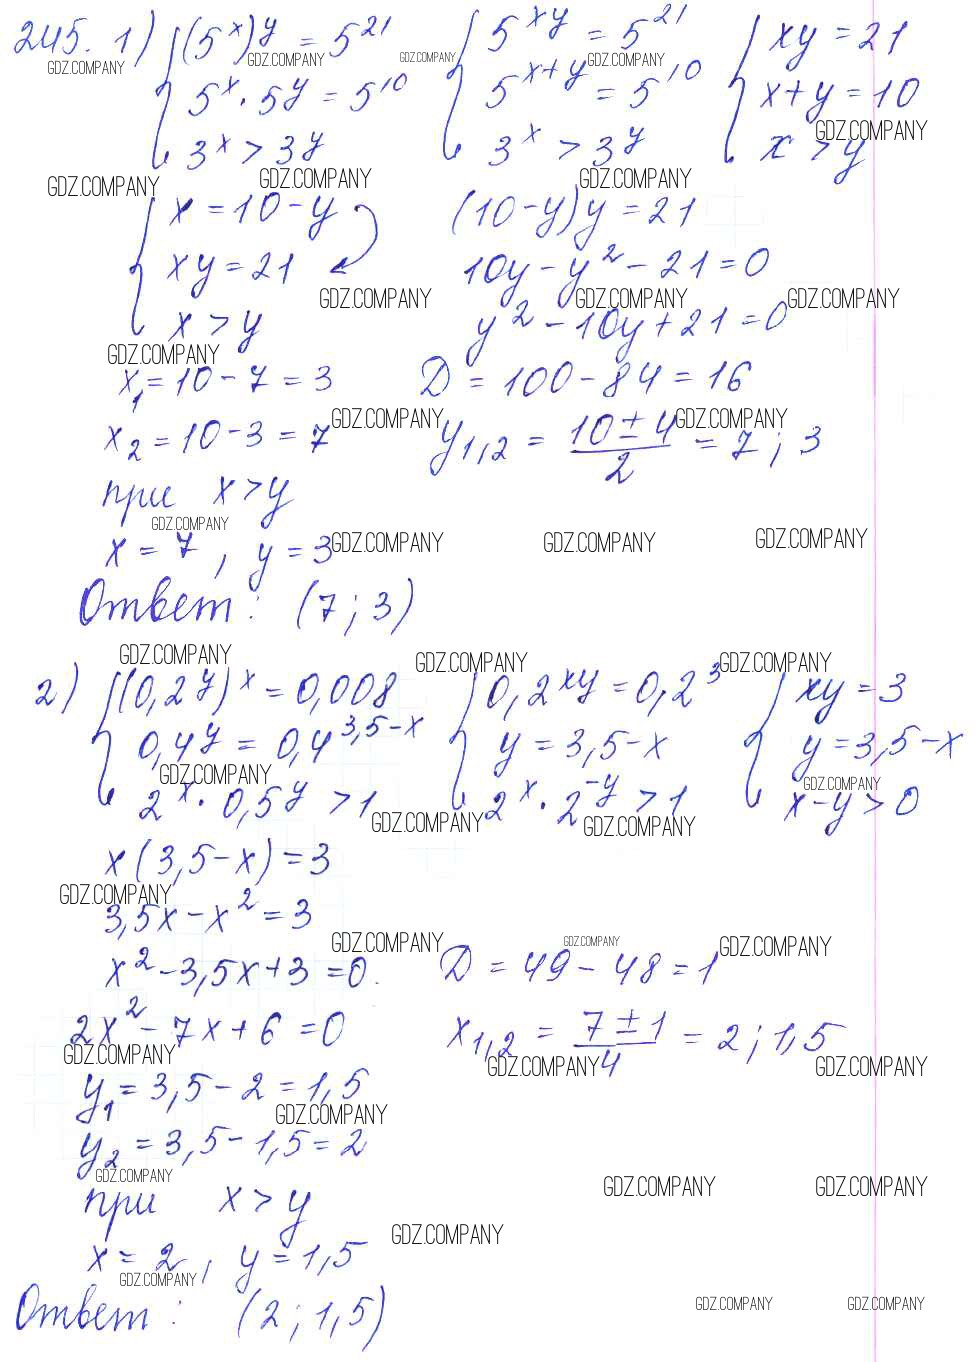 245. 1) { (5^x)^y = 5^21 { 5^xy = 5^21 { xy = 21
5^x · 5^y = 5^10 5^x+y = 5^10 x+y = 10
3^x > 3^y 3^x > 3^y x > y
{ x = 10 - y (10 - y)y = 21
xy = 21 10y - y² - 21 = 0
x > y y² - 10y + 21 = 0
x₁ = 10 - 7 = 3 D = 100 - 84 = 16
x₂ = 10 - 3 = 7 y₁,₂ = (10 ± 4)/2 = 7; 3
при x > y
x = 7, y = 3
Ответ: (7; 3)
2) { (0,2^y)^x = 0,008 { 0,2^xy = 0,2^3 { xy = 3
0,4^y = 0,4^3,5-x y = 3,5 - x y = 3,5 - x
2^x · 0,5^y > 1 2^x · 2^-y > 1 x - y > 0
x(3,5 - x) = 3
3,5x - x² = 3
x² - 3,5x + 3 = 0. D = 49 - 48 = 1
2x² - 7x + 6 = 0 x₁,₂ = (7 ± 1)/4 = 2; 1,5
y₁ = 3,5 - 2 = 1,5
y₂ = 3,5 - 1,5 = 2
при x > y
x = 2, y = 1,5
Ответ: (2; 1,5)
GDZ.COMPANY